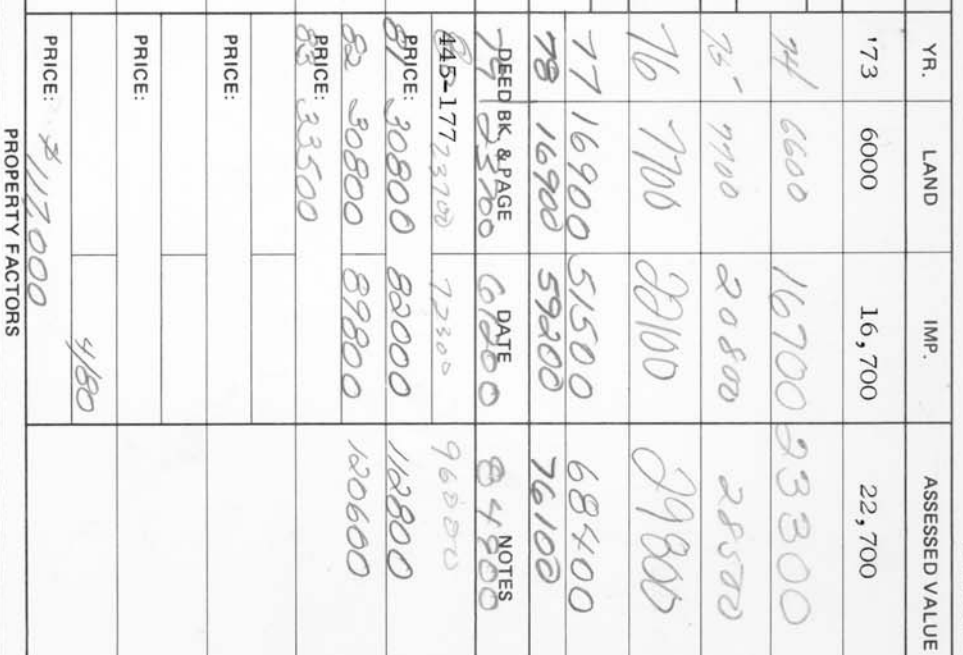 YR. LAND IMP. ASSESSED VALUE
'73 6000 16,700 22,700
74 6600 16700 23300
75 7700 20800 28500
76 7700 22100 29800
77 16900 51500 68400
78 16900 59200 76100
DEED BK. & PAGE DATE NOTES
79 23700 61200 84800
445-177 23700 72300 96000
PRICE:
81 30800 82000 112800
82 30800 89800 120600
PRICE:
83 33500
PRICE:
PRICE:
4/80
PRICE: $117,000
PROPERTY FACTORS